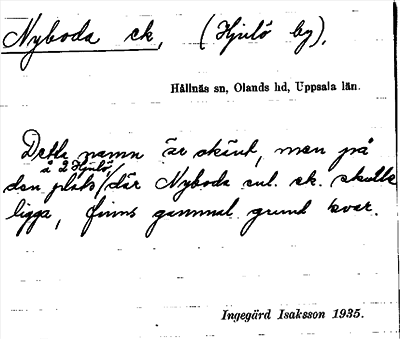 Nyboda ek, (Hjulö by),
Hållnäs sn, Olands hd, Uppsala län.
Detta namn är okänt, men på
å 2 Hjulö,
den plats/där Nyboda enl. ek. skulle
ligga, finns gammal grund kvar.
Ingegärd Isaksson 1935.